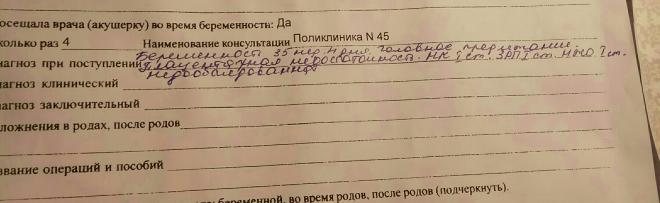 осещала врача (акушерку) во время беременность: Да
колько раз 4 Наименование консультации Поликлиника N 45
Беременность 35 нед 4 дня, головное предлежание.
иагноз при поступлении Плацентарная недостаточность. НК I ст. ЗРП I ст.
недообследования
иагноз клинический
иагноз заключительный
ложнения в родах, после родов
звание операций и пособий
беременной, во время родов, после родов (подчеркнуть).